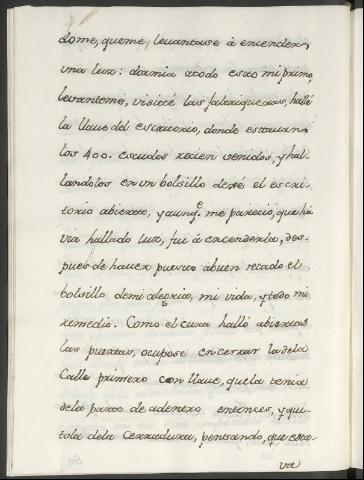 dome, queme levantase á encender
una luz: dormia atodo esto mi primo,
levanteme, visité las faltriqueras, hallé
la llave del escritorio, donde estavan
los 400. escudos recien venidos, y hal-
landolos en un bolsillo dexé el escri-
torio abierto, y aunq.e me pareció, que ha
via hallado luz, fui á encenderla, des-
pues de haver puesto á buen recado el
bolsillo de mi alegria, mi vida, y todo mi
remedio. Como el cura halló abiertas
las puertas, ocupose en cerrar la de la
Calle primero con llave, que la tenia
de la parte de adentro entonces, y qui-
tola de la Cerradura, pensando, que esta-
va